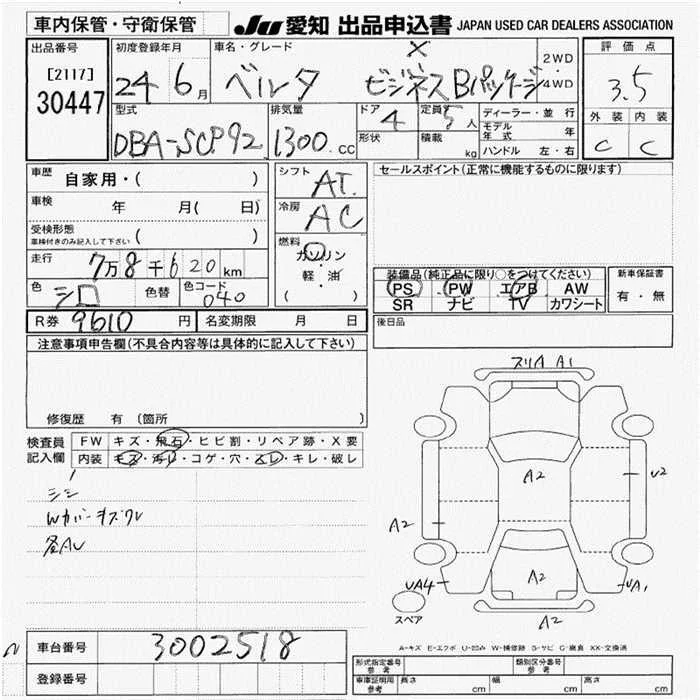 車内保管・守衛保管
JU 愛知 出品申込書 JAPAN USED CAR DEALERS ASSOCIATION
出品番号
[2117]
30447
初度登録年月
24 6月
車名・グレード
ベルタ X ビジネスBパッケージ
2WD
・
4WD
評価点
3.5
外装 内装
C C
型式
DBA-SCP92
排気量
1300.CC
ドア
4
形状
定員
5人
積載
kg
ディーラー・並行
モデル年式 年
ハンドル 左・右
車歴
自家用・( )
車検
年 月( 日)
受検形態
車検付きのみ記入して下さい ( )
走行
7万8千620km
色
シロ
色替
色コード
040
R券 9610円
名変期限 月 日
シフト
AT
冷房
AC
燃料
ガソリン
・
軽・油
( )
セールスポイント(正常に機能するものに限ります)
装備品(純正品に限り○をつけてください)
PS PW エアB AW
SR ナビ TV カワシート
新車保証書
有・無
後日品
注意事項申告欄(不具合内容等は具体的に記入して下さい)
修復歴 有(箇所 )
検査員記入欄
FW キズ・飛石・ヒビ割・リペア跡・X要
内装 キズ・汚レ・コゲ・穴・スレ・キレ・破レ
Wカバーキズワレ
各AU
スリA A1
A2
A2
U2
A2
UA4
UA1
A2
スペア
A-キズ E-エクボ U-凹み W-補修跡 S-サビ C-腐食 XX-交換済
車台番号 3002518
登録番号
形式指定番号
参考
類別区分番号
参考
車庫証明用
参考
長さ cm
幅 cm
高さ cm